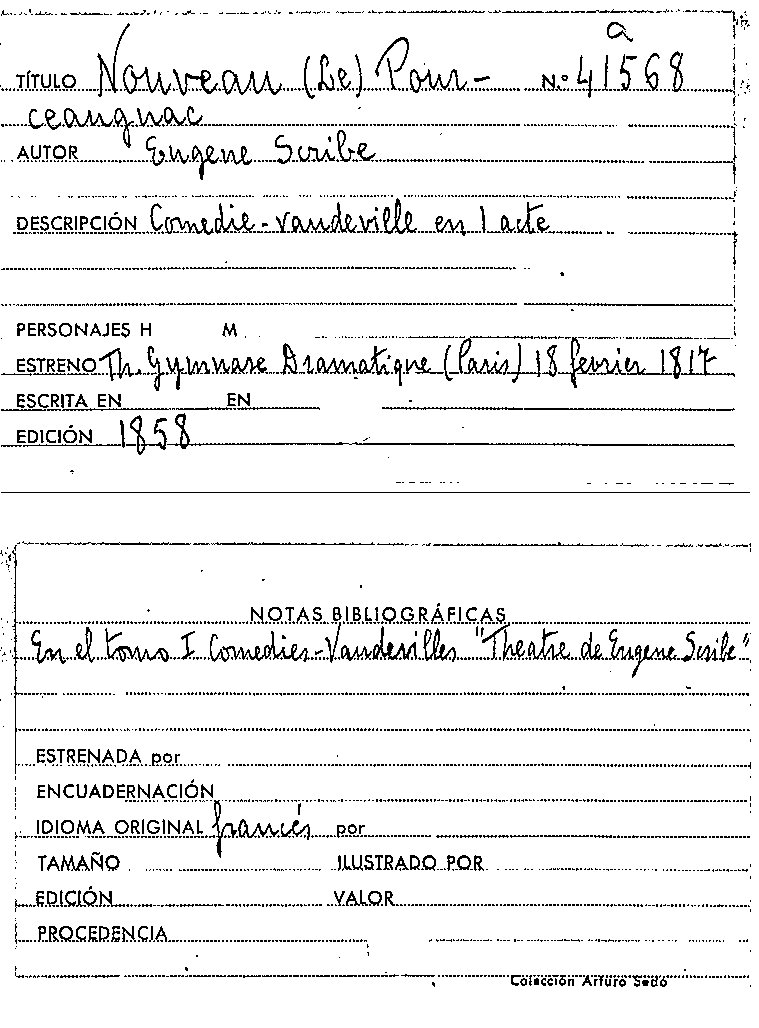 a
TÍTULO Nouveau (Le) Pour- N.º 41568
ceaugnac
AUTOR Eugene Scribe
DESCRIPCIÓN Comedie-vaudeville en 1 acte
PERSONAJES H M
ESTRENO Th. Gymnase Dramatique (Paris) 18 fevrier 1817
ESCRITA EN EN
EDICIÓN 1858
NOTAS BIBLIOGRÁFICAS
En el tomo I Comedies-Vaudevilles "Theatre de Eugene Scribe"
ESTRENADA por
ENCUADERNACIÓN
IDIOMA ORIGINAL francés por
TAMAÑO ILUSTRADO POR
EDICIÓN VALOR
PROCEDENCIA
Colección Arturo Sedó